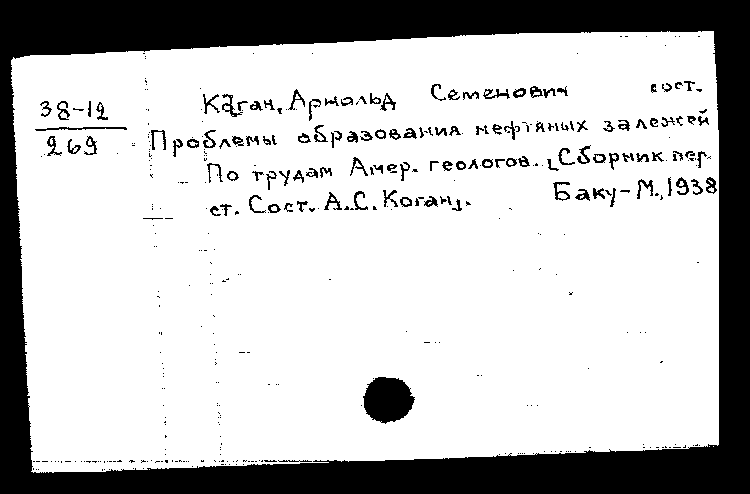 38-12
269
Каган, Арнольд Семенович сост.
Проблемы образования нефтяных залежей
По трудам Амер. геологов. [Сборник пер.
ст. Сост. А.С. Коган]. Баку-М., 1938